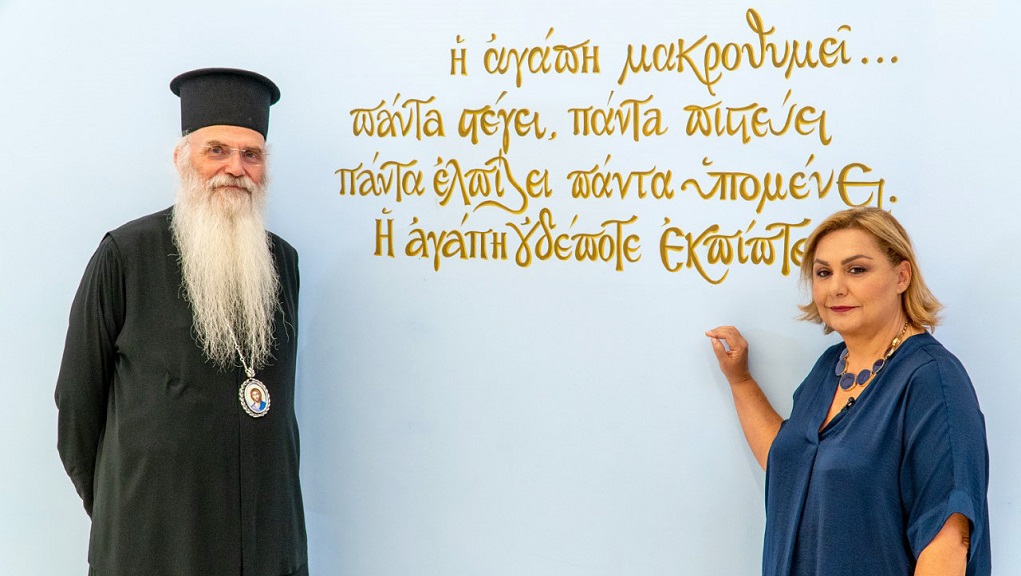 ἡ ἀγάπη μακροθυμεῖ...
πάντα στέγει, πάντα πιστεύει
πάντα ἐλπίζει πάντα ὑπομένει.
Ἡ ἀγάπη οὐδέποτε ἐκπίπτε